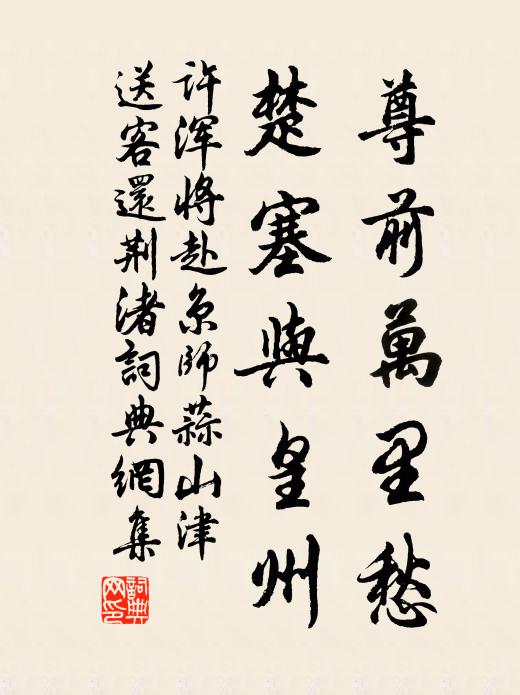 尊前萬里愁
楚塞與皇州
許渾將赴京師蒜山津
送客還荆渚詞典網集
詞典網印